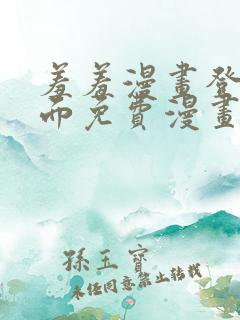 羞羞漫畫登
而免費漫畫
孫玉寶
未经同意禁止转载